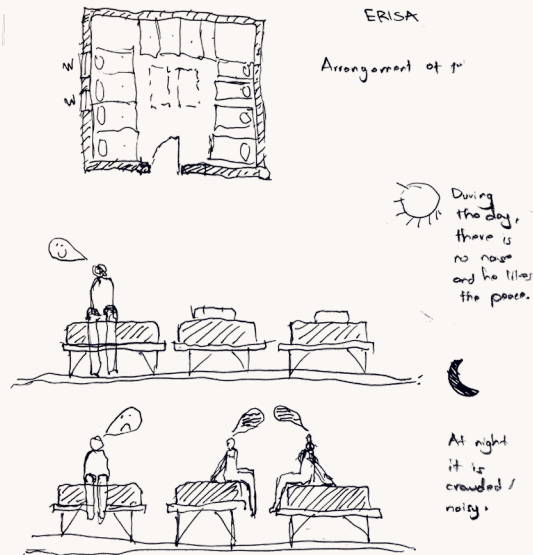 ERISA
Arrangement of
W
W
During
the day,
there is
no noise
and he likes
the peace.
At night
it is
crowded /
noisy.